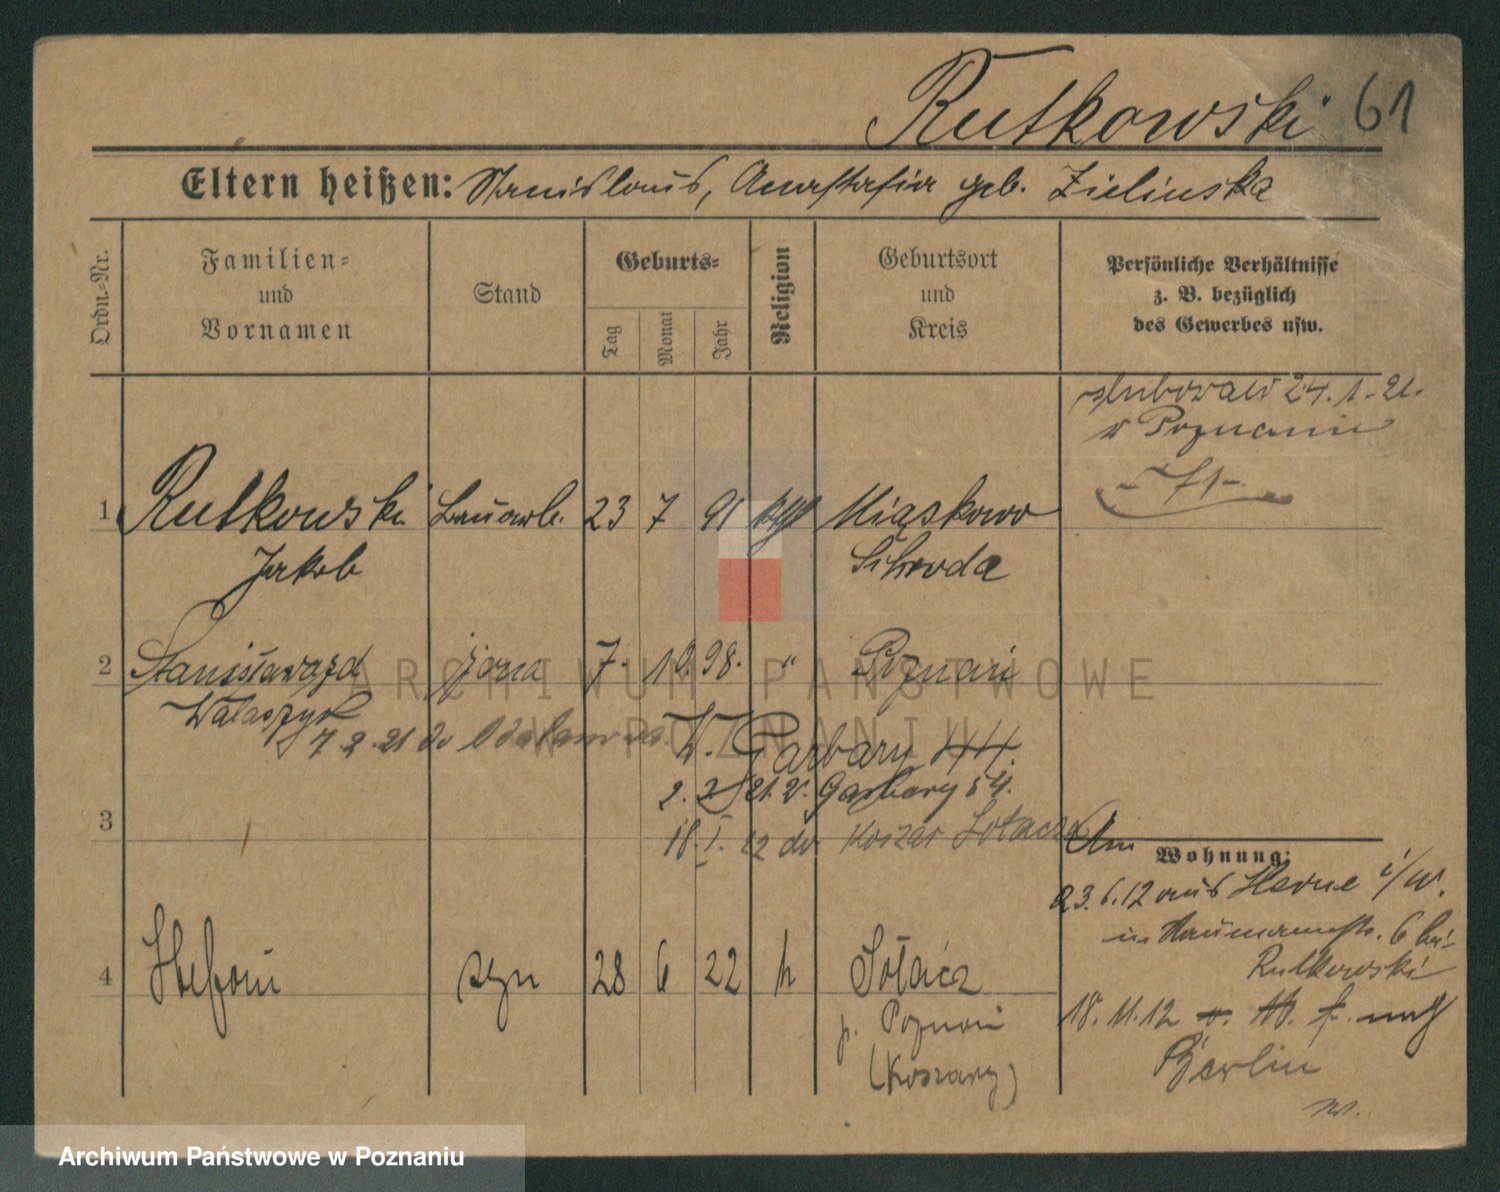 Rutkowski 61
Eltern heißen: Stanislaus, Anastasia geb. Zielinska
Ordn.=Nr.
Familien=
und
Vornamen
Stand
Geburts=
Tag
Monat
Jahr
Religion
Geburtsort
und
Kreis
Persönliche Verhältnisse
z. B. bezüglich
des Gewerbes usw.
ślubował 24.1.21.
w Poznaniu
1 Rutkowski 23 7 91 kath Miąskowo
Jakob Schroda
2 Stanisława zd żona 7. 10. 98. " Poznań
Walaszyk
7.2.21 do
W. Garbary 44.
2. 21. W. Garbary 54.
3
18. I. 22 do Koszar Sołacza
Am
Wohnung:
23.6.12 aus Herne i/W.
in Naumannstr. 6 bei
Rutkowski
18.11.12 nach
Berlin
4 Stefan syn 28 6 22 k Sołacz
p. Poznań
(Koszary)
ARCHIWUM PAŃSTWOWE
W POZNANIU
Archiwum Państwowe w Poznaniu